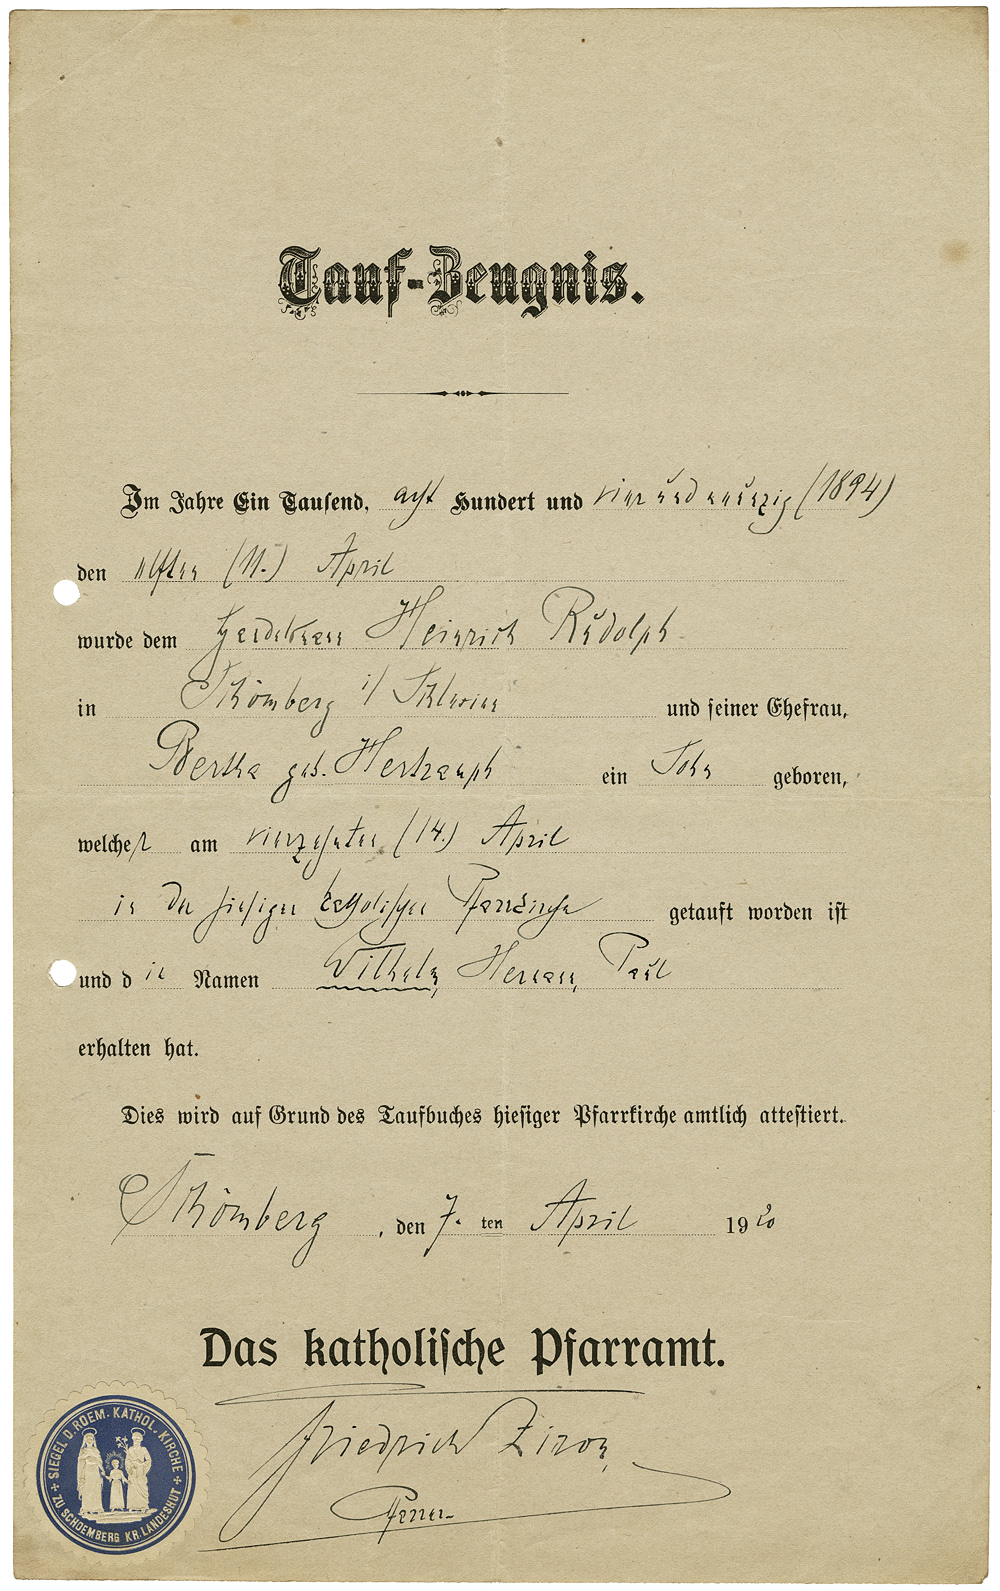 Tauf-Zeugnis.
Im Jahre Ein Tausend, acht Hundert und vier und neunzig (1894)
den elften (11.) April
wurde dem Heinrich Rudolph
in Schömberg i/ Schlesien und seiner Ehefrau,
Bertha geb. ein Sohn geboren,
welcher am vierzehnten (14.) April
in der hiesigen katholischen Pfarrkirche getauft worden ist
und die Namen Wilhelm, Hermann, Paul
erhalten hat.
Dies wird auf Grund des Taufbuches hiesiger Pfarrkirche amtlich attestiert.
Schömberg, den 7. ten April 1920
Das katholische Pfarramt.
Friedrich
Pfarrer
SIEGEL D. ROEM. KATHOL. KIRCHE
ZU SCHOEMBERG KR. LANDESHUT